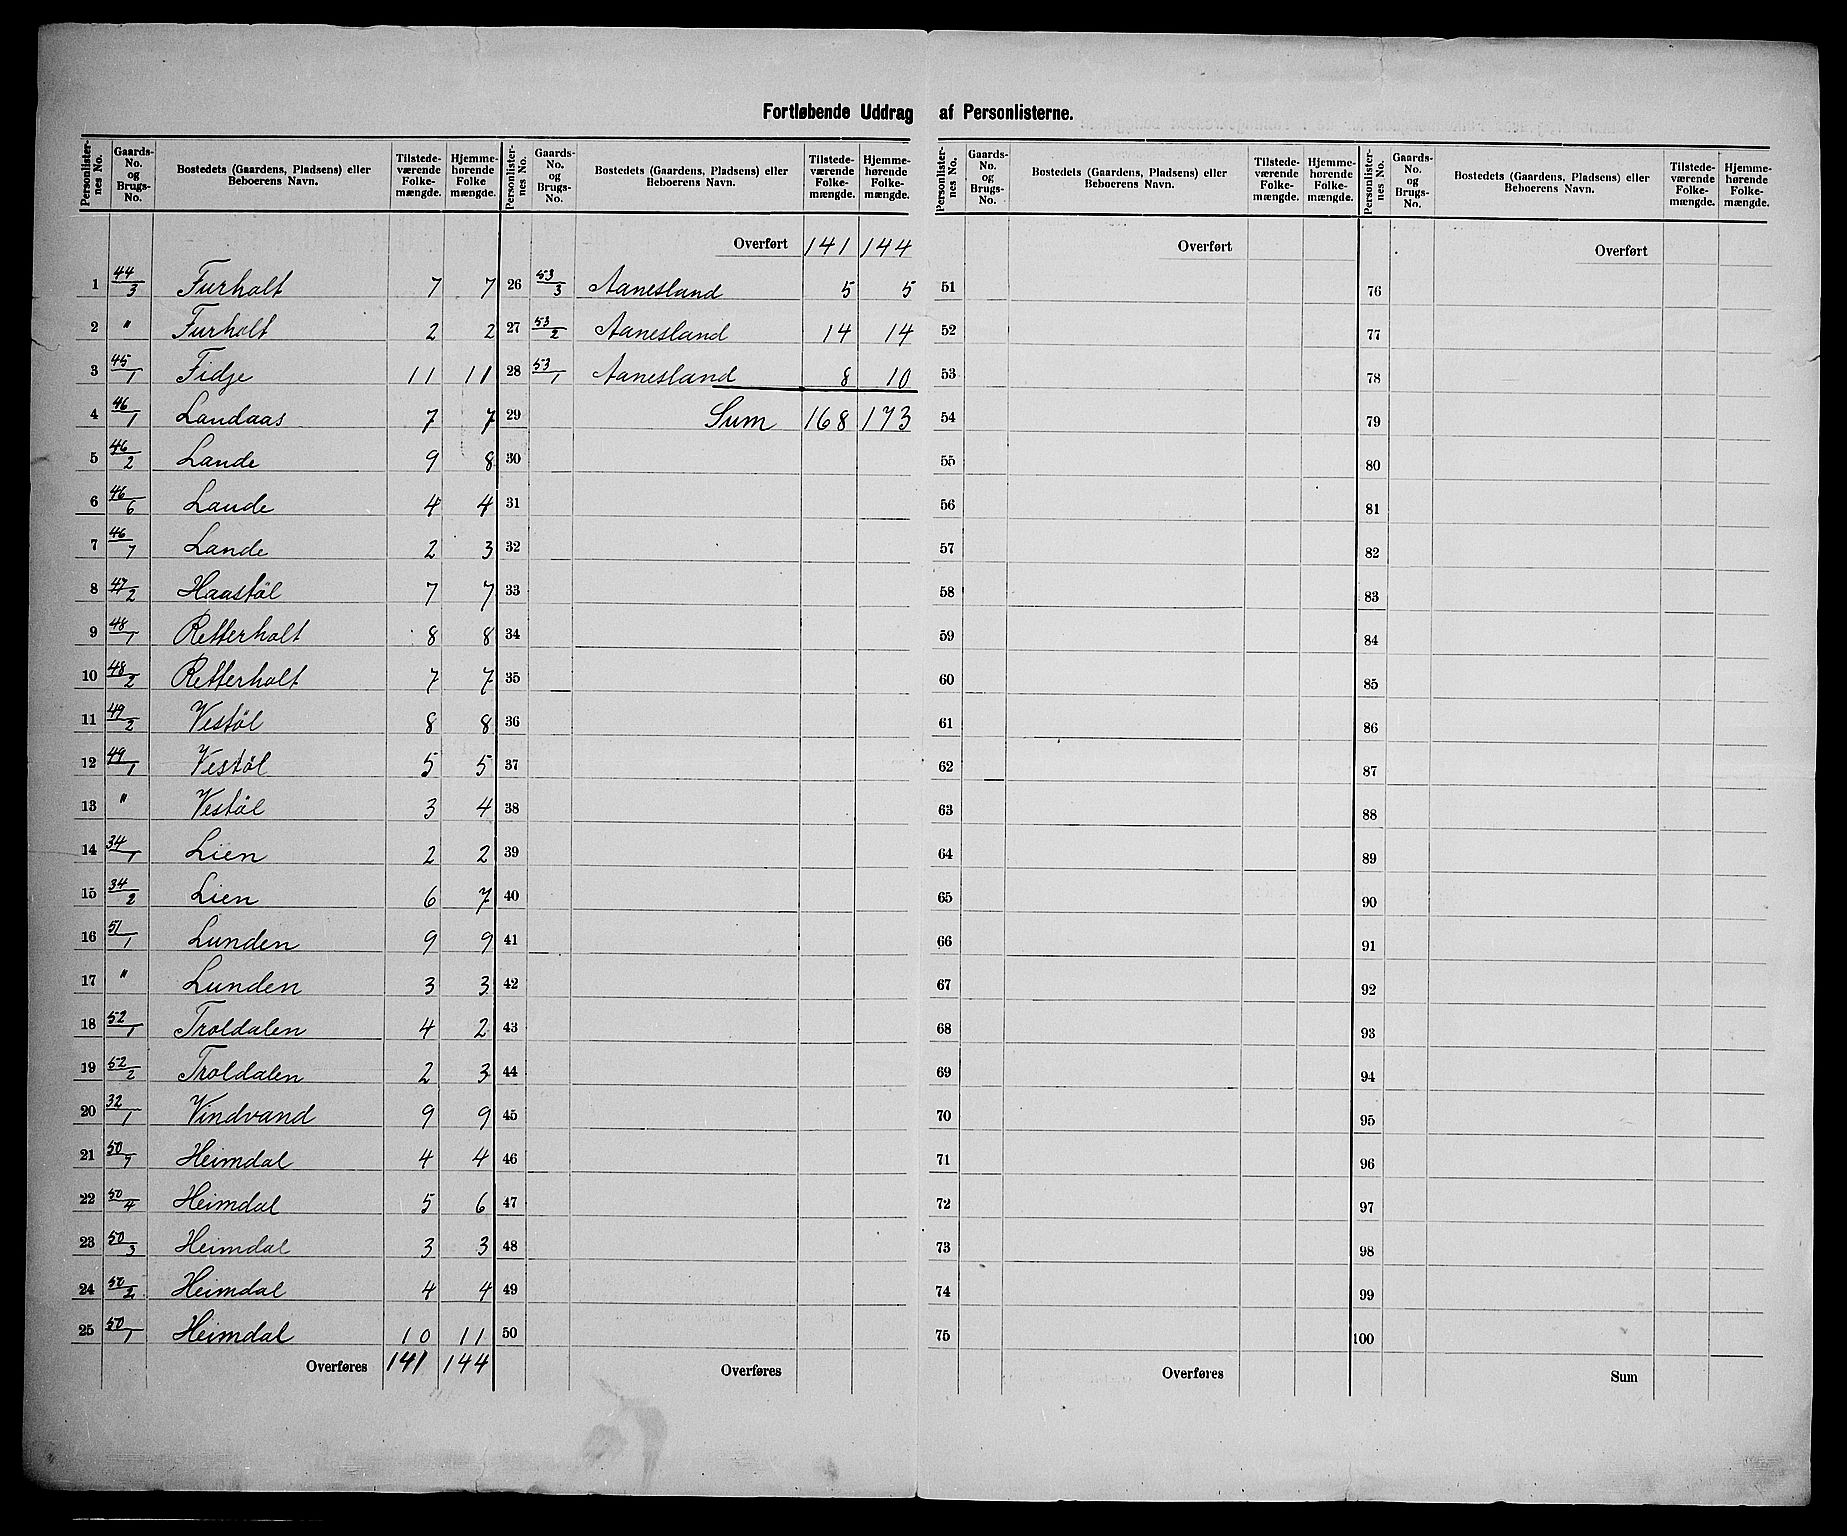 Fortløbende Uddrag af Personlisterne.
Personlister-nes No. Gaards-No. og Brugs-No. Bostedets (Gaardens, Pladsens) eller Beboerens Navn. Tilstede-værende Folke-mængde. Hjemme-hørende Folke mængde. Personlister-nes No. Gaards-No. og Brugs-No. Bostedets (Gaardens, Pladsens) eller Beboerens Navn. Tilstede-værende Folke-mængde. Hjemme-hørende Folke-mængde. Personlister-nes No. Gaards-No. og Brugs-No. Bostedets (Gaardens, Pladsens) eller Beboerens Navn. Tilstede-værende Folke-mængde. Hjemme-hørende Folke-mængde. Personlister-nes No. Gaards-No. og Brugs-No. Bostedets (Gaardens, Pladsens) eller Beboerens Navn. Tilstede-værende Folke-mængde. Hjemme-hørende Folke-mængde.
Overført 141 144 Overført Overført
1 44/3 Furholt 7 7 26 53/3 Aanesland 5 5 51 76
2 " Furholt 2 2 27 53/2 Aanesland 14 14 52 77
3 45/1 Fidje 11 11 28 53/1 Aanesland 8 10 53 78
4 46/1 Landaas 7 7 29 Sum 168 173 54 79
5 46/2 Lande 9 8 30 55 80
6 46/6 Lande 4 4 31 56 81
7 46/7 Lande 2 3 32 57 82
8 47/2 Haastøl 7 7 33 58 83
9 48/1 Retterholt 8 8 34 59 84
10 48/2 Retterholt 7 7 35 60 85
11 49/2 Vestøl 8 8 36 61 86
12 49/1 Vestøl 5 5 37 62 87
13 " Vestøl 3 4 38 63 88
14 34/1 Lien 2 2 39 64 89
15 34/2 Lien 6 7 40 65 90
16 51/1 Lunden 9 9 41 66 91
17 " Lunden 3 3 42 67 92
18 52/1 Troldalen 4 2 43 68 93
19 52/2 Troldalen 2 3 44 69 94
20 32/1 Vindvand 9 9 45 70 95
21 50/7 Heimdal 4 4 46 71 96
22 50/4 Heimdal 5 6 47 72 97
23 50/3 Heimdal 3 3 48 73 98
24 50/2 Heimdal 4 4 49 74 99
25 50/1 Heimdal 10 11 50 75 100
Overføres 141 144 Overføres Overføres Sum